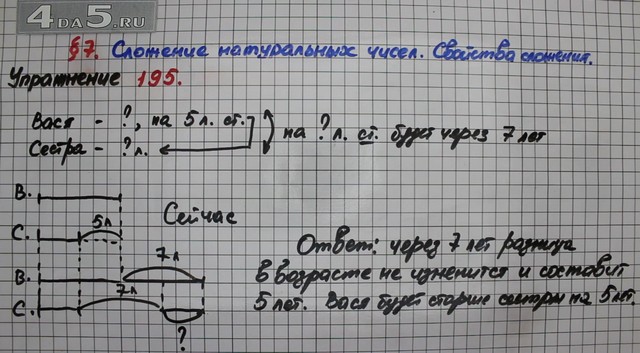 4DA5.RU
§7. Сложение натуральных чисел. Свойства сложения.
Упражнение 195.
Вася - ?, на 5 л. ст.
Сестра - ? л.
на ? л. ст. будет через 7 лет
В.
5л
С.
Сейчас
7л
В.
7л
С.
?
Ответ: через 7 лет разница
в возрасте не изменится и составит
5 лет. Вася будет старше сестры на 5 лет.